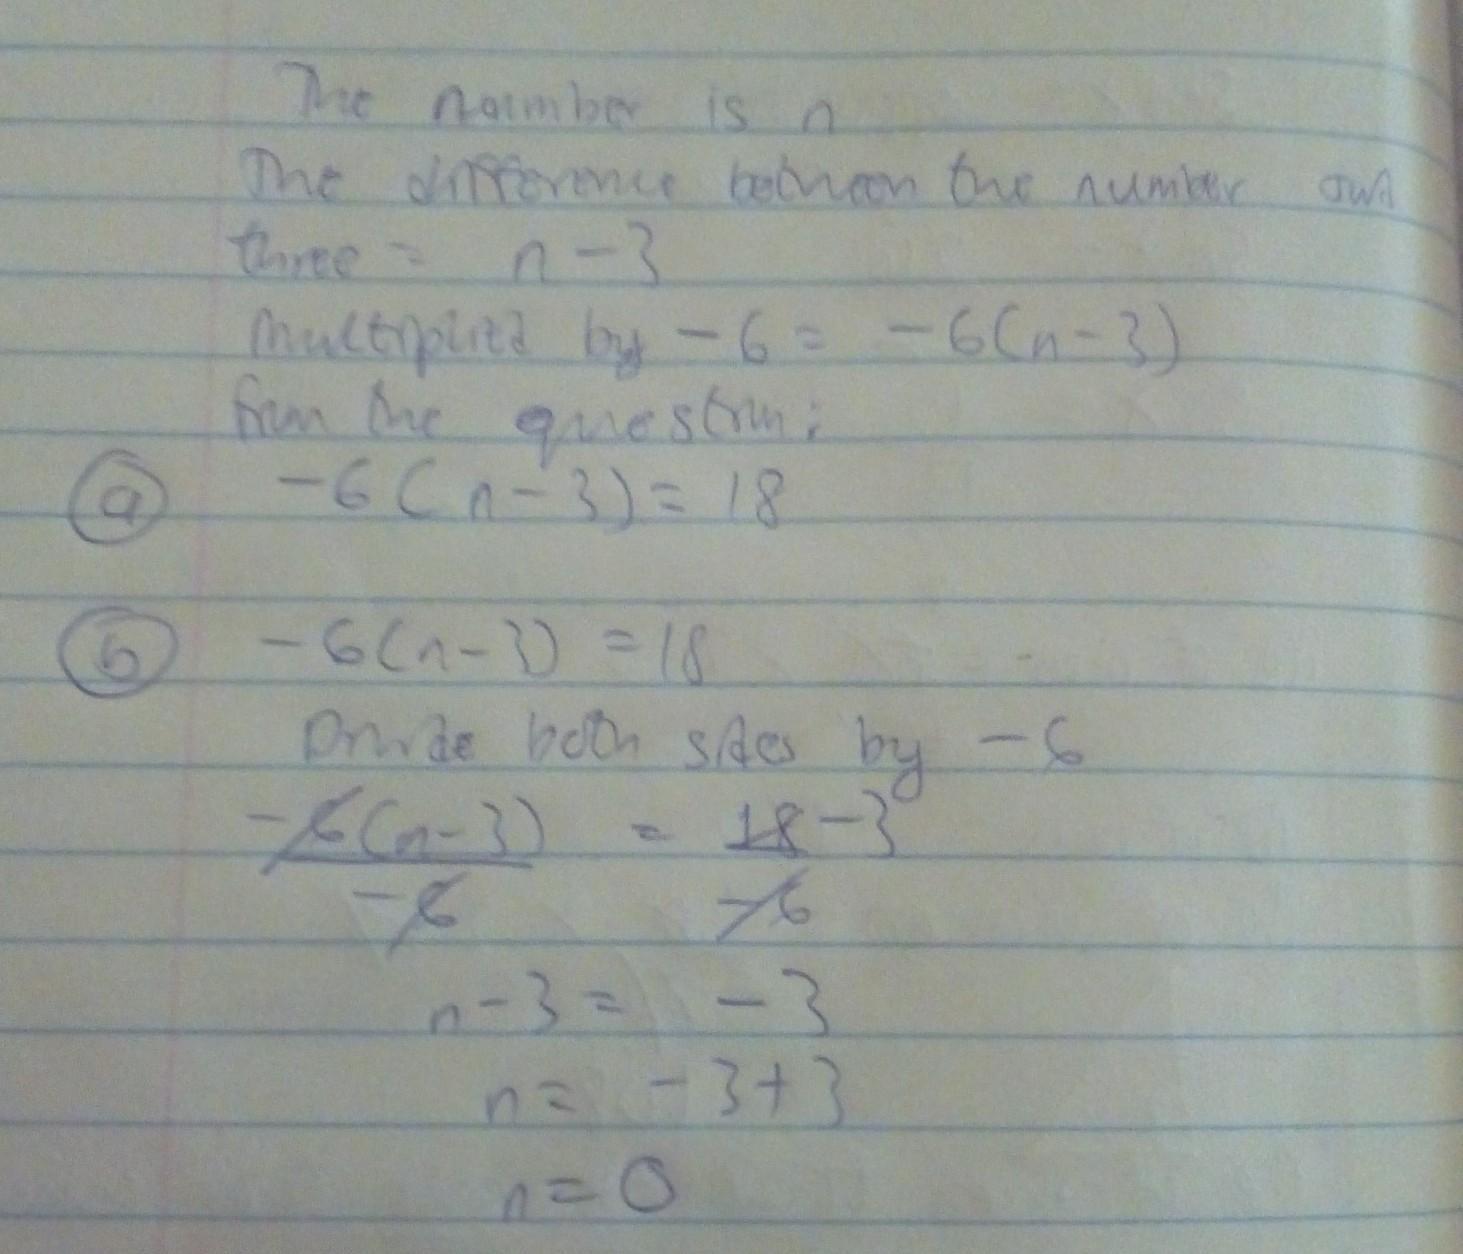 The number is n
The difference between the number and
three = n-3
Multiplied by -6 = -6(n-3)
from the question:
(a) -6(n-3) = 18
(b) -6(n-3) = 18
Divide both sides by -6
-6(n-3) = 18 -3
-6 -6
n-3 = -3
n = -3+3
n = 0